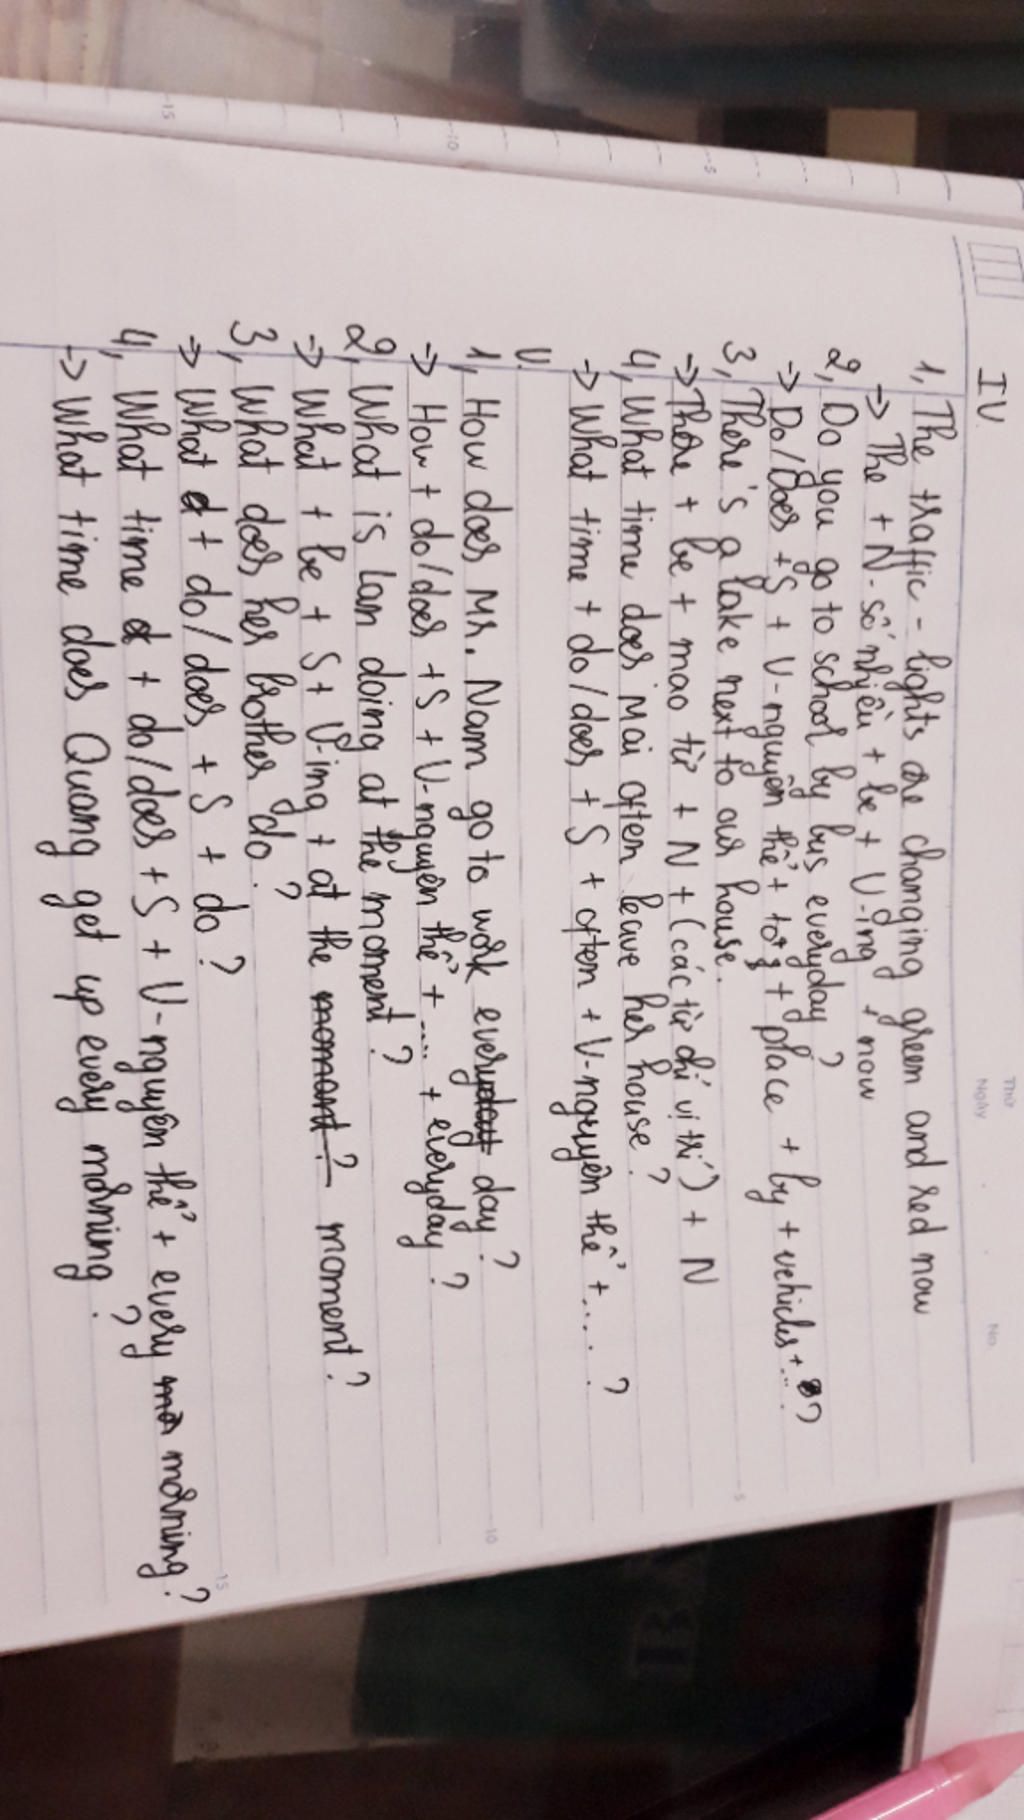 Thứ
Ngày
No.
IV.
1, The traffic - lights are changing green and red now
→ The + N - số nhiều + be + V-ing + now
2, Do you go to school by bus everyday?
→ Do/Does + S + V-nguyên thể + to + place + by + vehicles + ... ?
3, There's a lake next to our house.
→ There + be + mạo từ + N + (các từ chỉ vị trí) + N
4, What time does Mai often leave her house?
→ What time + do/does + S + often + V-nguyên thể + .... ?
V.
1, How does Mr. Nam go to work every day?
→ How + do/does + S + V-nguyên thể + .... + everyday?
2, What is Lan doing at the moment?
→ What + be + S + V-ing + at the momant? moment?
3, What does her brother do?
→ What + do/does + S + do?
4, What time + do/does + S + V-nguyên thể + every morning?
→ What time does Quang get up every morning?